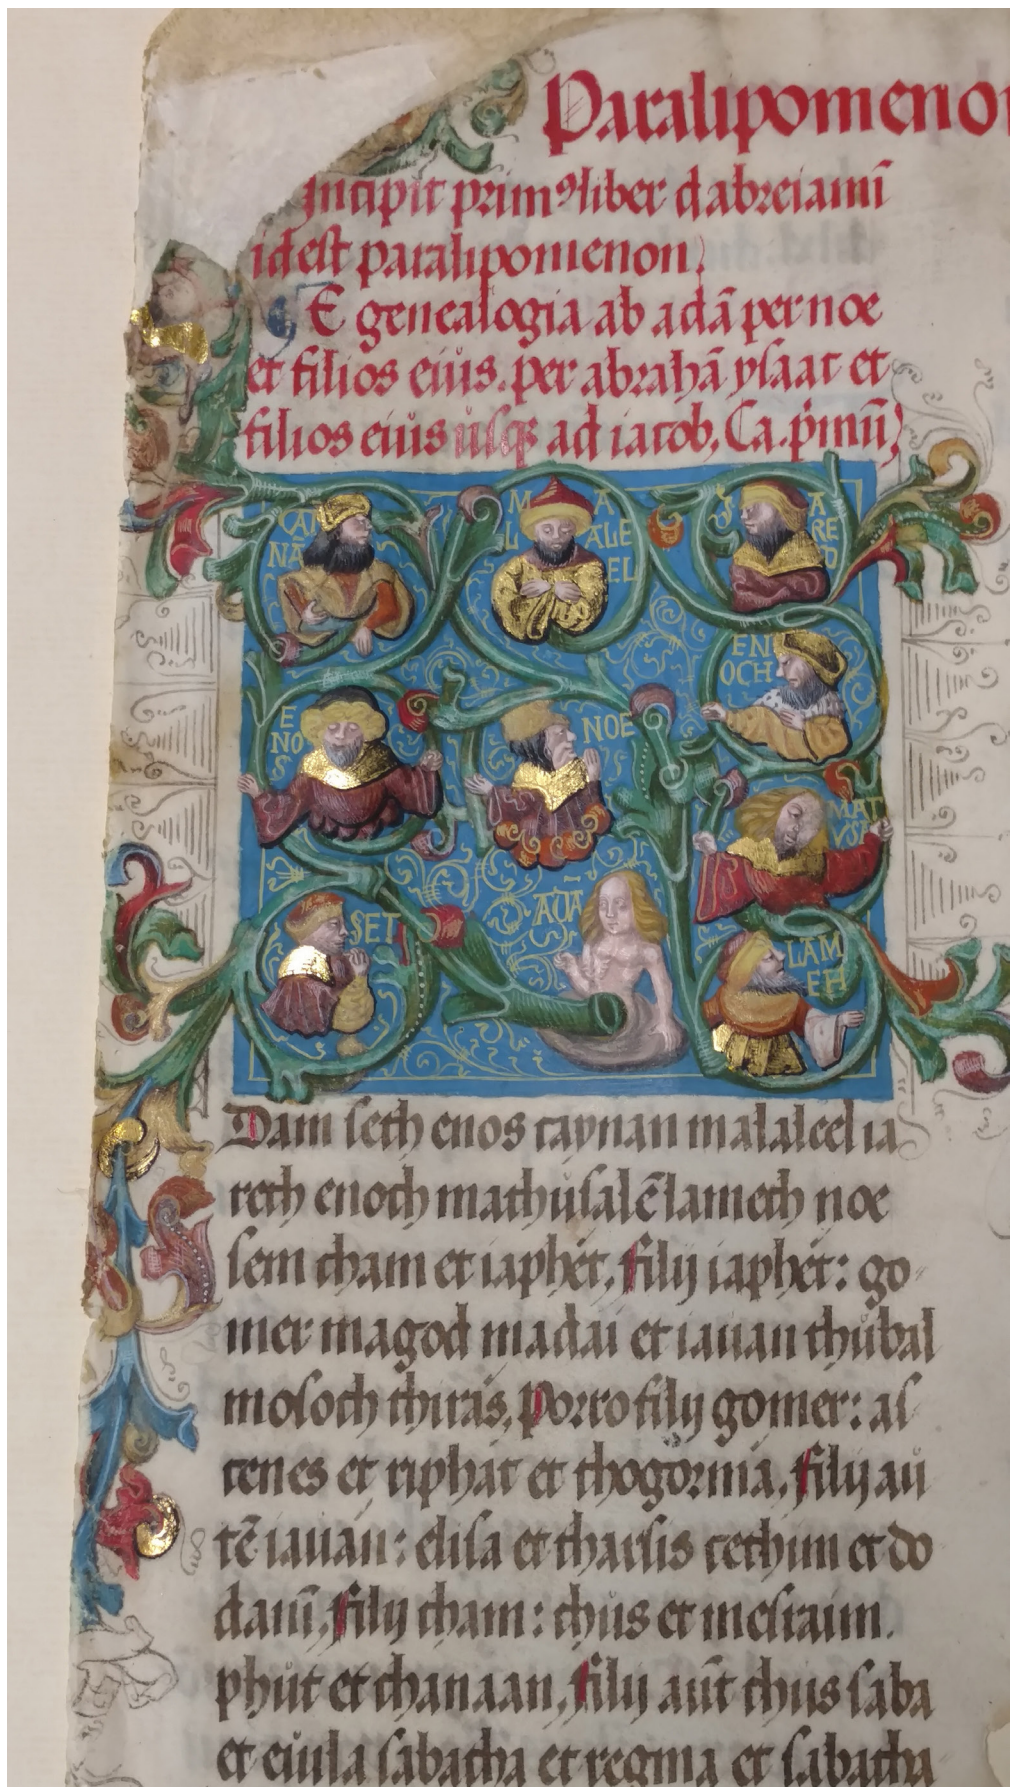 Paralipomenon
Incipit prim⁹ liber dabreiamī
idest paralipomenon
E genealogia ab adā per noe
et filios eius. per abrahā ysaac et
filios eius usq ad iacob. Ca. pīmū
CAI
NĀ
MA
LALE
EL
A
RE
D
EN
OCH
E
NO
S
NOE
MAT
VSA
SET
ADĀ
LAM
EH
Dam seth enos caynan malaleel ia
reth enoch mathusalē lameth noe
sem cham et iaphet. filij iaphet: go
mer magod madai et iauan thubal
mosoch thiras. Porro filij gomer: as
cenes et riphat et thogorma. filij au
tē iauan: elisa et tharsis cethim et do
danī. filij cham: chus et mesraim.
phut et chanaan. filij aūt chus saba
et euila sabatha et regma et sabatha